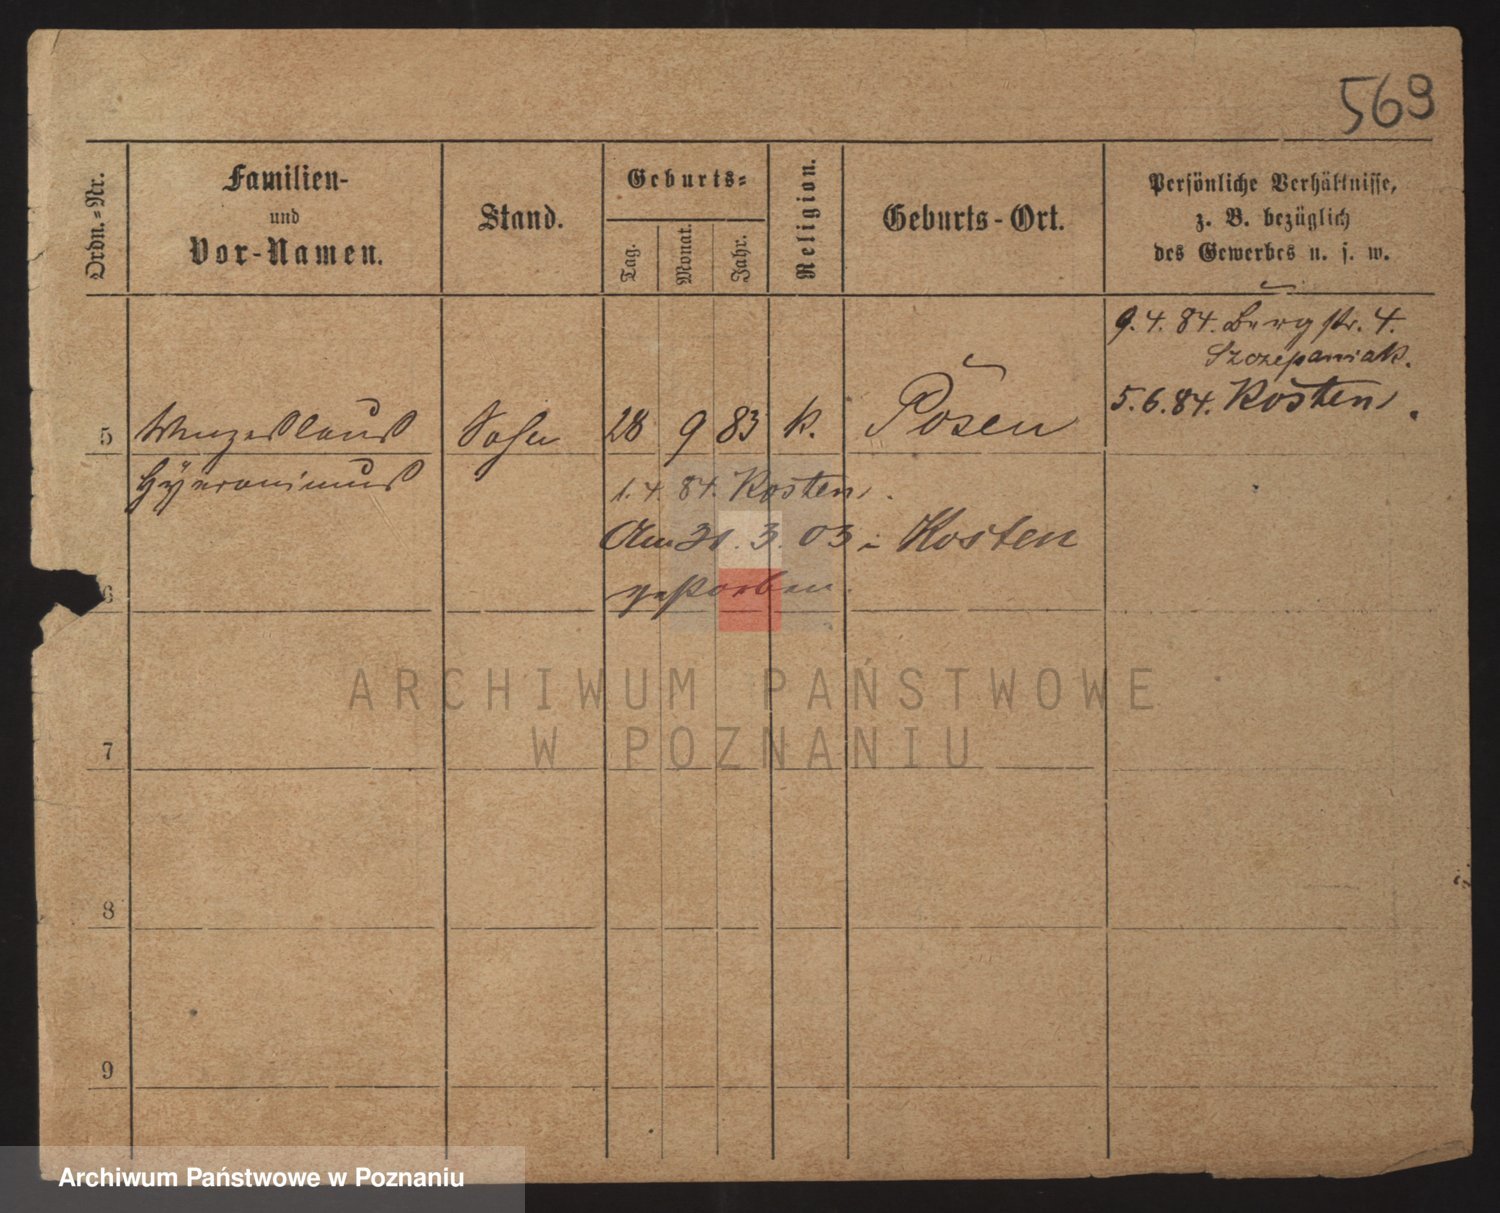 569
Ordn.-Nr.
Familien-
und
Vor-Namen.
Stand.
Geburts-
Tag.
Monat.
Jahr.
Religion.
Geburts-Ort.
Persönliche Verhältnisse,
z. B. bezüglich
des Gewerbes u. s. w.
9. 4. 84. Bergstr. 4.
Szczepaniak.
5. 6. 84. Kosten.
5 Wenzeslaus Sohn 28 9 83 k. Posen
Hyeronimus
1. 4. 84. Kosten.
Am 31. 3. 03 in Kosten
gestorben.
6
7
8
9
ARCHIWUM PAŃSTWOWE
W POZNANIU
Archiwum Państwowe w Poznaniu